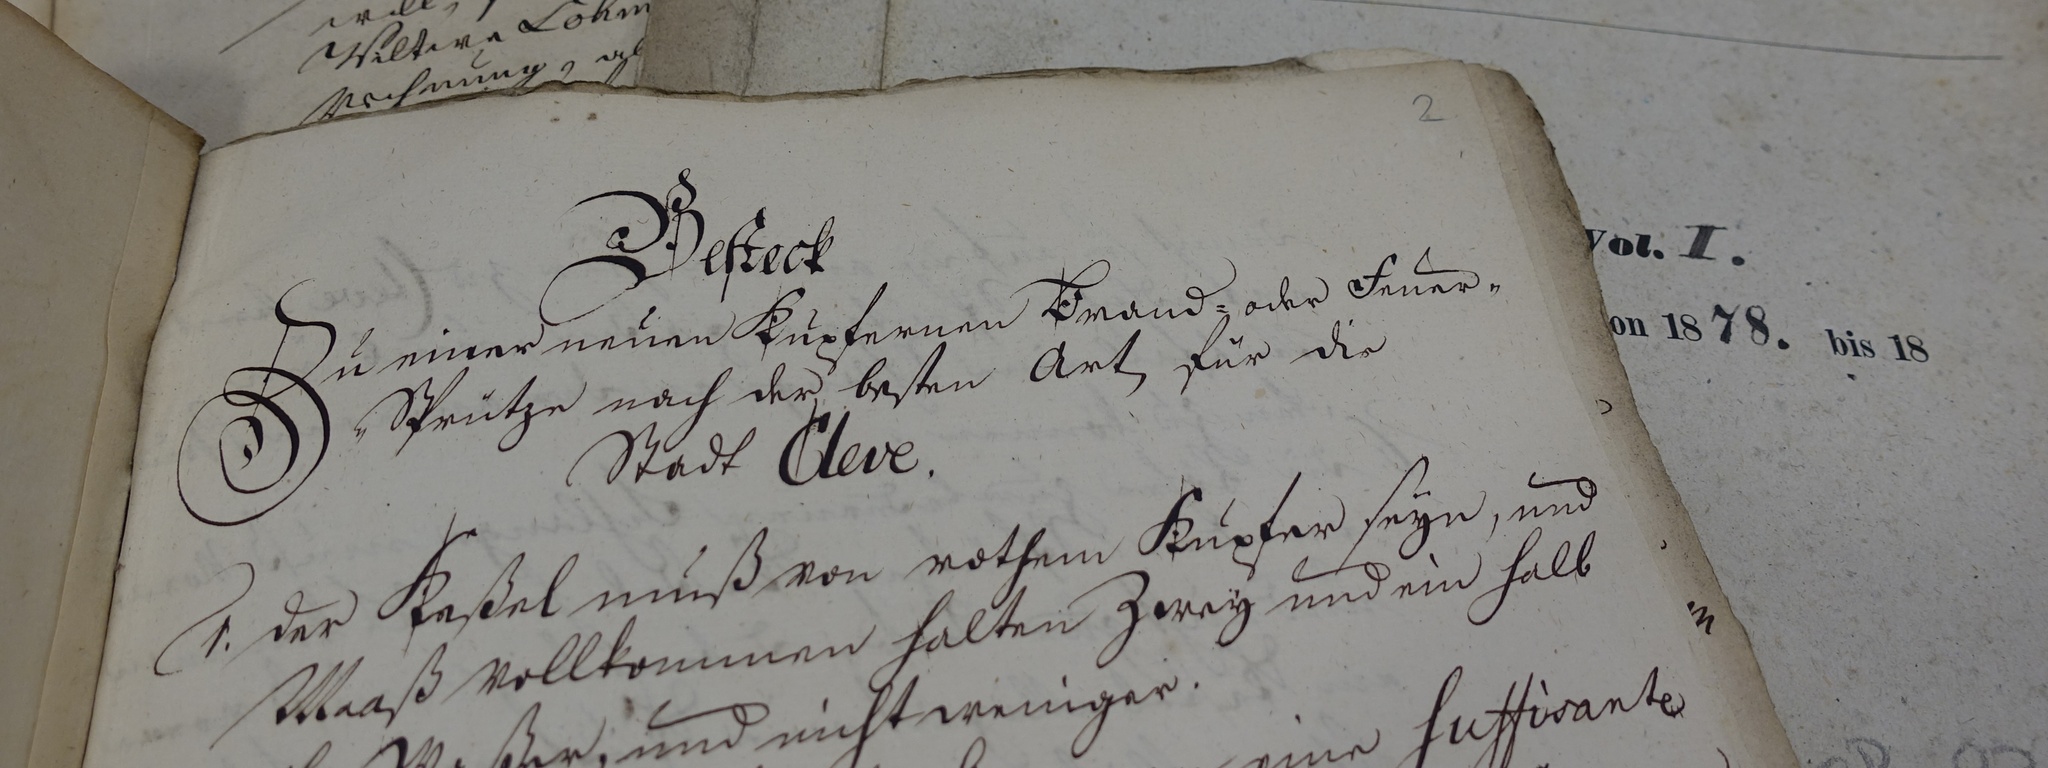 Weitere
rechnung, al
2
Besteck
Zu einer neuen Kupfernen Brand= oder Feuer=
=Sprütze nach der besten Art, für die
Stadt Cleve.
1. der Keßel muß von rothem Kupfer seyn, und
Maaß vollkommen halten Zwey und ein halb
Waßer, und nicht weniger.
eine suffisante
Vol. I.
on 1878. bis 18